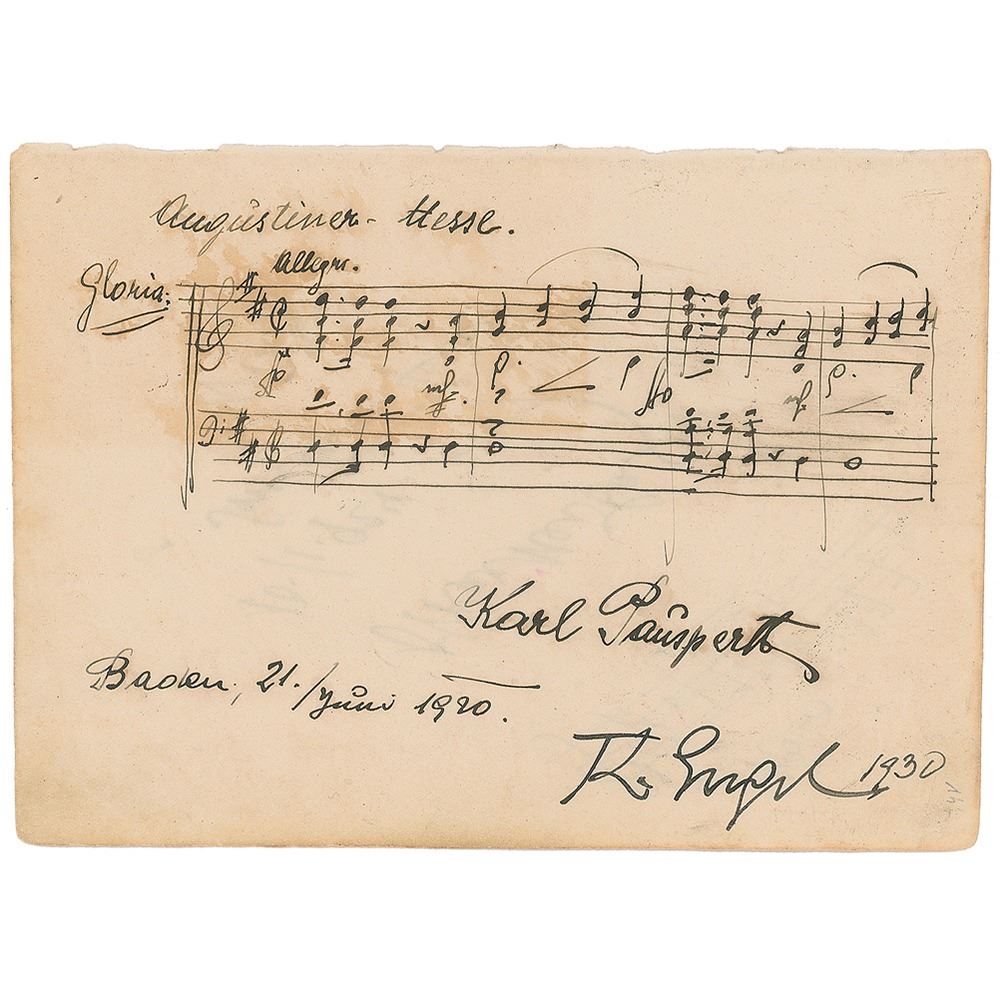 Augustiner-Messe.
Gloria:
Allegro.
ff
mf.
ff
mf
Karl Pauspertl
Baden, 21. Juni 1920.
R. Engel 1930